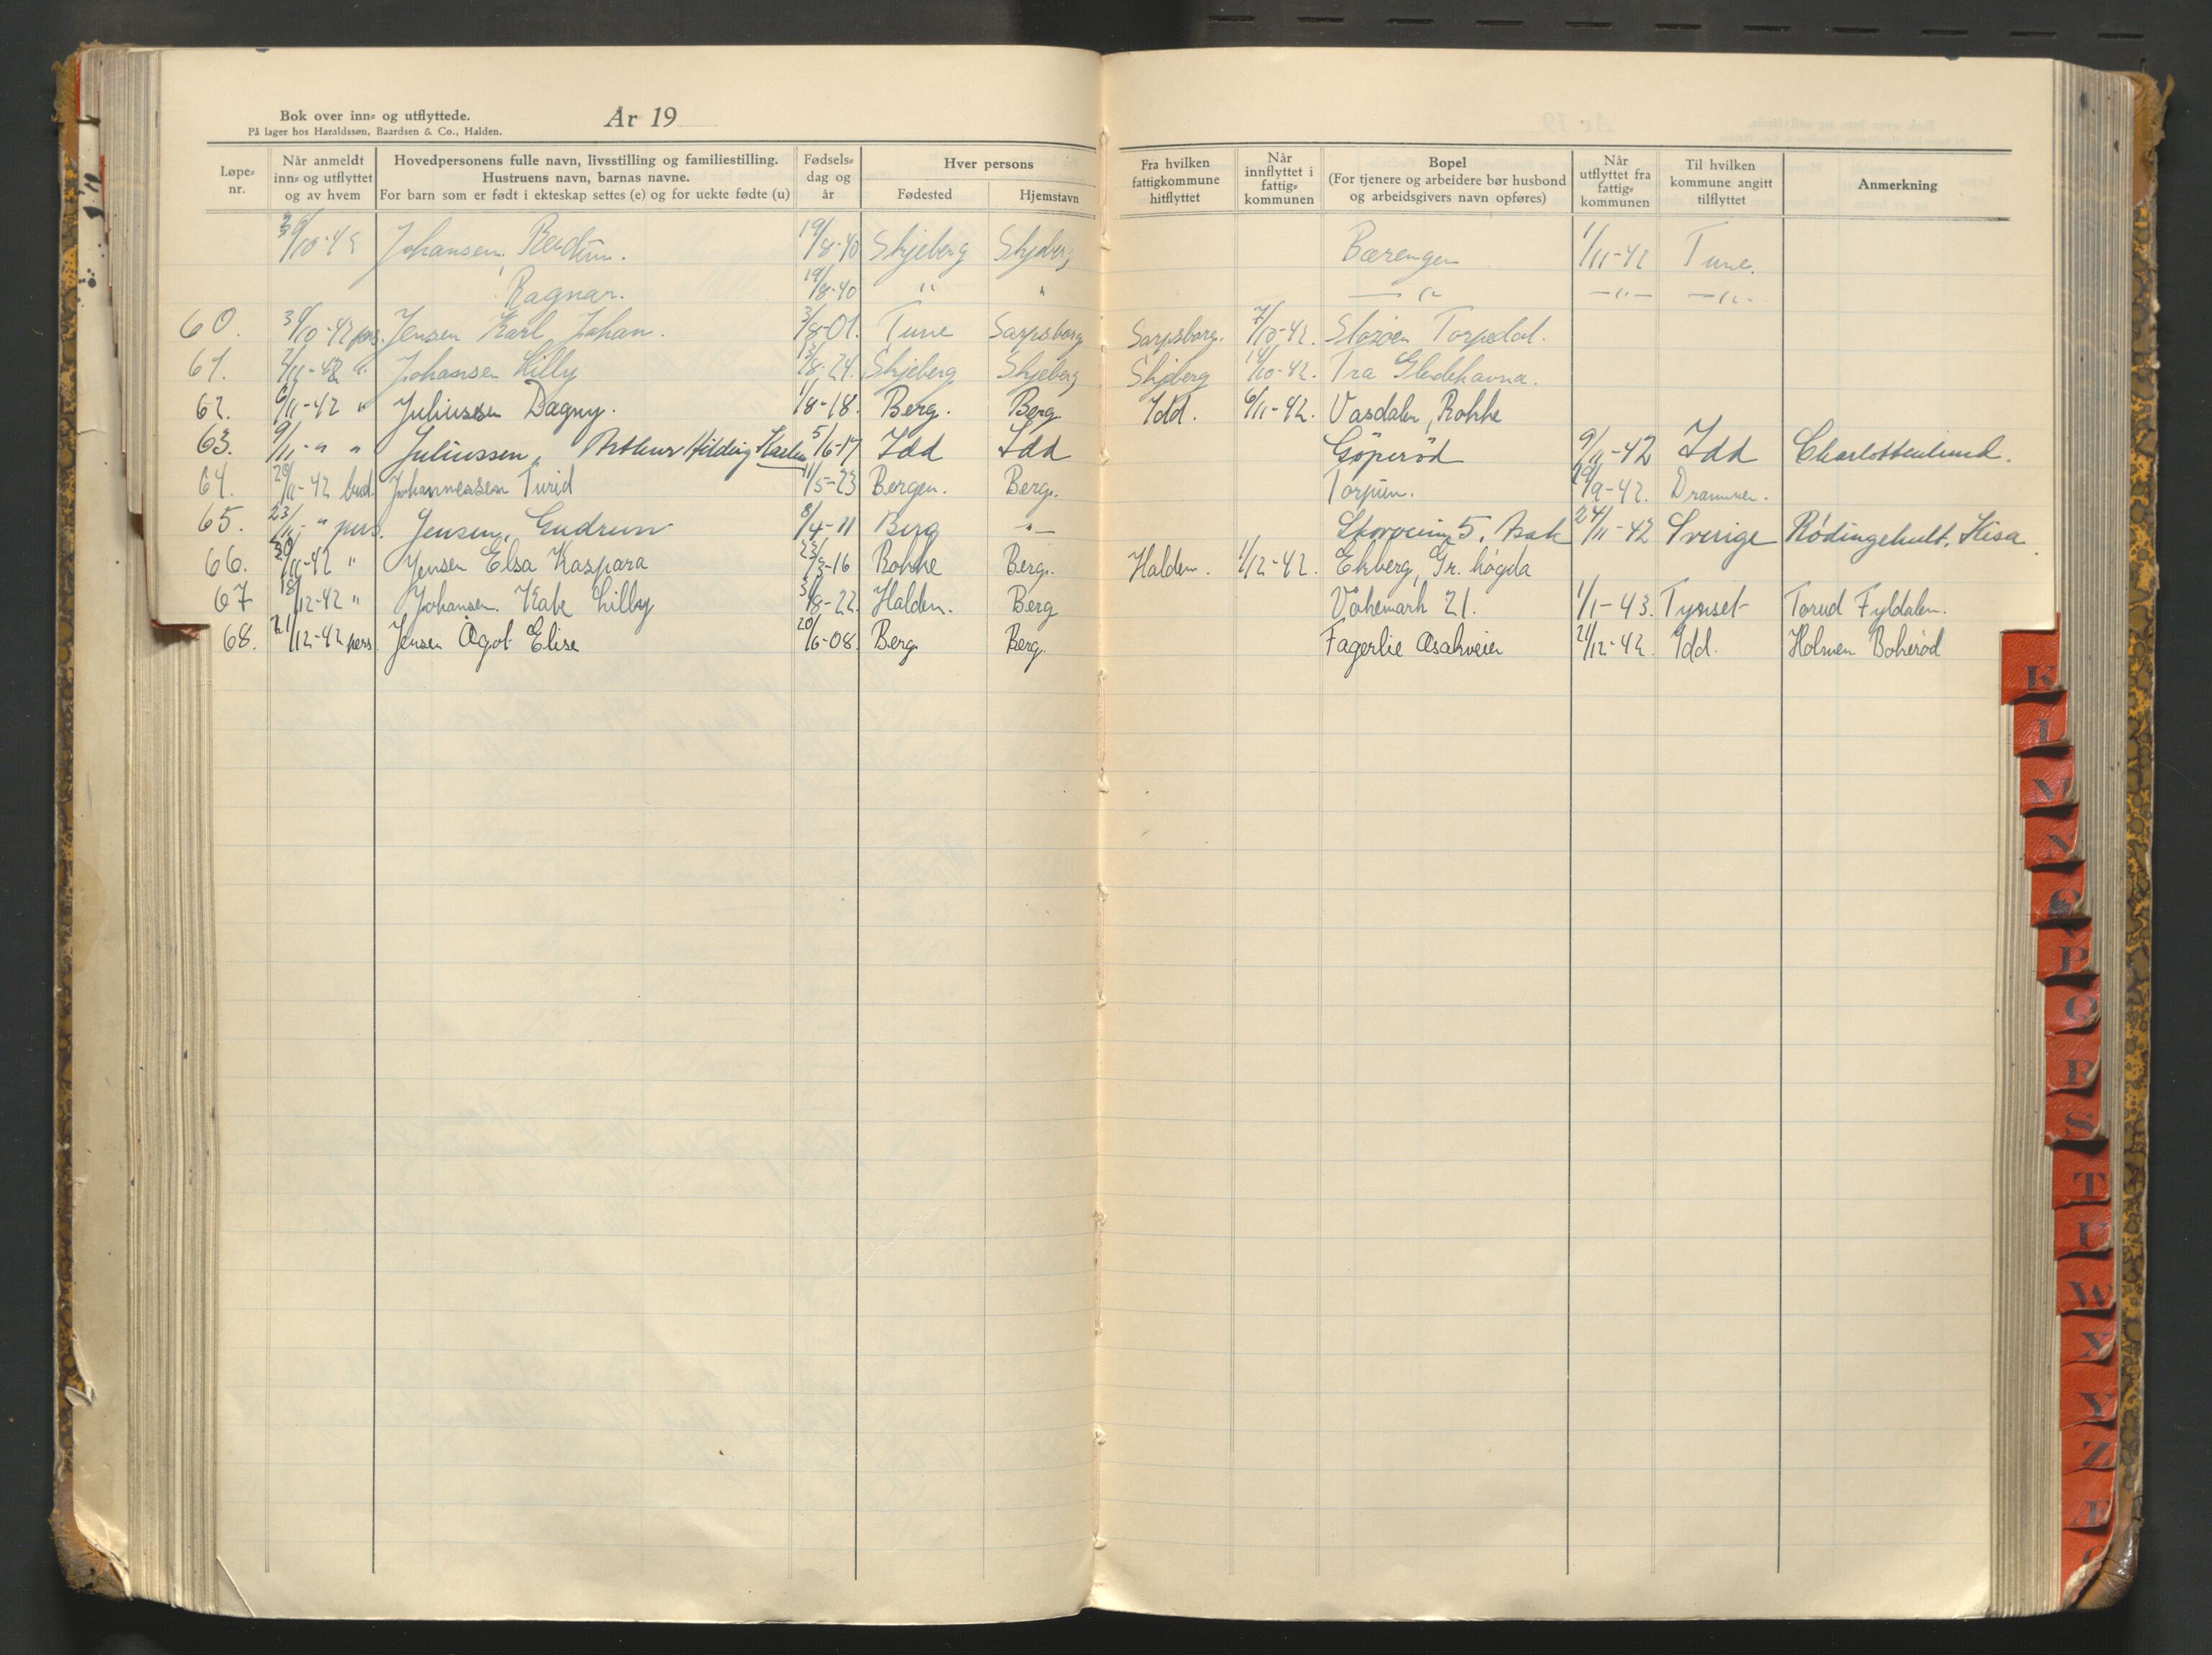 Bok over inn- og utflyttede.
På lager hos Haraldssøn, Baardsen & Co., Halden.
År 19
Løpe-nr. Når anmeldt inn- og utflyttet og av hvem Hovedpersonens fulle navn, livsstilling og familiestilling. Hustruens navn, barnas navne. For barn som er født i ekteskap settes (e) og for uekte fødte (u) Fødsels-dag og år Hver persons Fødested Hjemstavn Fra hvilken fattigkommune hitflyttet Når innflyttet i fattig-kommunen Bopel (For tjenere og arbeidere bør husbond og arbeidsgivers navn opføres) Når utflyttet fra fattig-kommunen Til hvilken kommune angitt tilflyttet Anmerkning
30/10-42 Johansen, Reidun. 19/8-40 Skjeberg Skjeberg Bærengen 1/11-42 Tune.
Ragnar. 19/8-40 " " — " — — " — — " —
60. 30/10-42 pers. Jensen Karl Johan. 3/8-01. Tune Sarpsborg Sarpsborg. 7/10-42. Torpedal.
61. 2/11-42 " Johansen Lilly 13/8-24. Skjeberg Skjeberg Skjeberg 14/10-42. Fra
62. 6/11-42 " Juliussen Dagny. 1/8-18. Berg. Berg. Idd. 6/11-42. Vasdalen, Rokke
63. 9/11-" " Juliussen, Arthur Hilding Karlen 5/6-17 Idd Idd Göperöd 9/11-42 Idd Charlottenlund.
64. 20/11-42 bud. Johannessen Turid 11/5-23 Bergen. Berg. Torpum. 29/9-42. Drammen.
65. 23/11-" pers. Jensen, Gudrun 8/4-11 Berg —"— 5, Asak 24/11-42 Sverige Rødingehult, Kisa
66. 30/11-42 " Jensen Elsa Kaspara 23/3-16 Rokke Berg. Halden. 1/12-42. Ekberg, Gr. høgda
67 18/12-42 " Johansen. Kate Lilly 31/8-22. Halden. Berg Våkemark 21. 1/1-43. Tynset Torud Fyldalen.
68. 21/12-42 pers. Jensen Ågot Elise 20/6-08. Berg Berg. Fagerlie Asakveien 21/12-42. Idd. Holmen Bokerød
K
L
M
N
O
P
Q
R
S
T
U
W
X
Y
Z
Æ